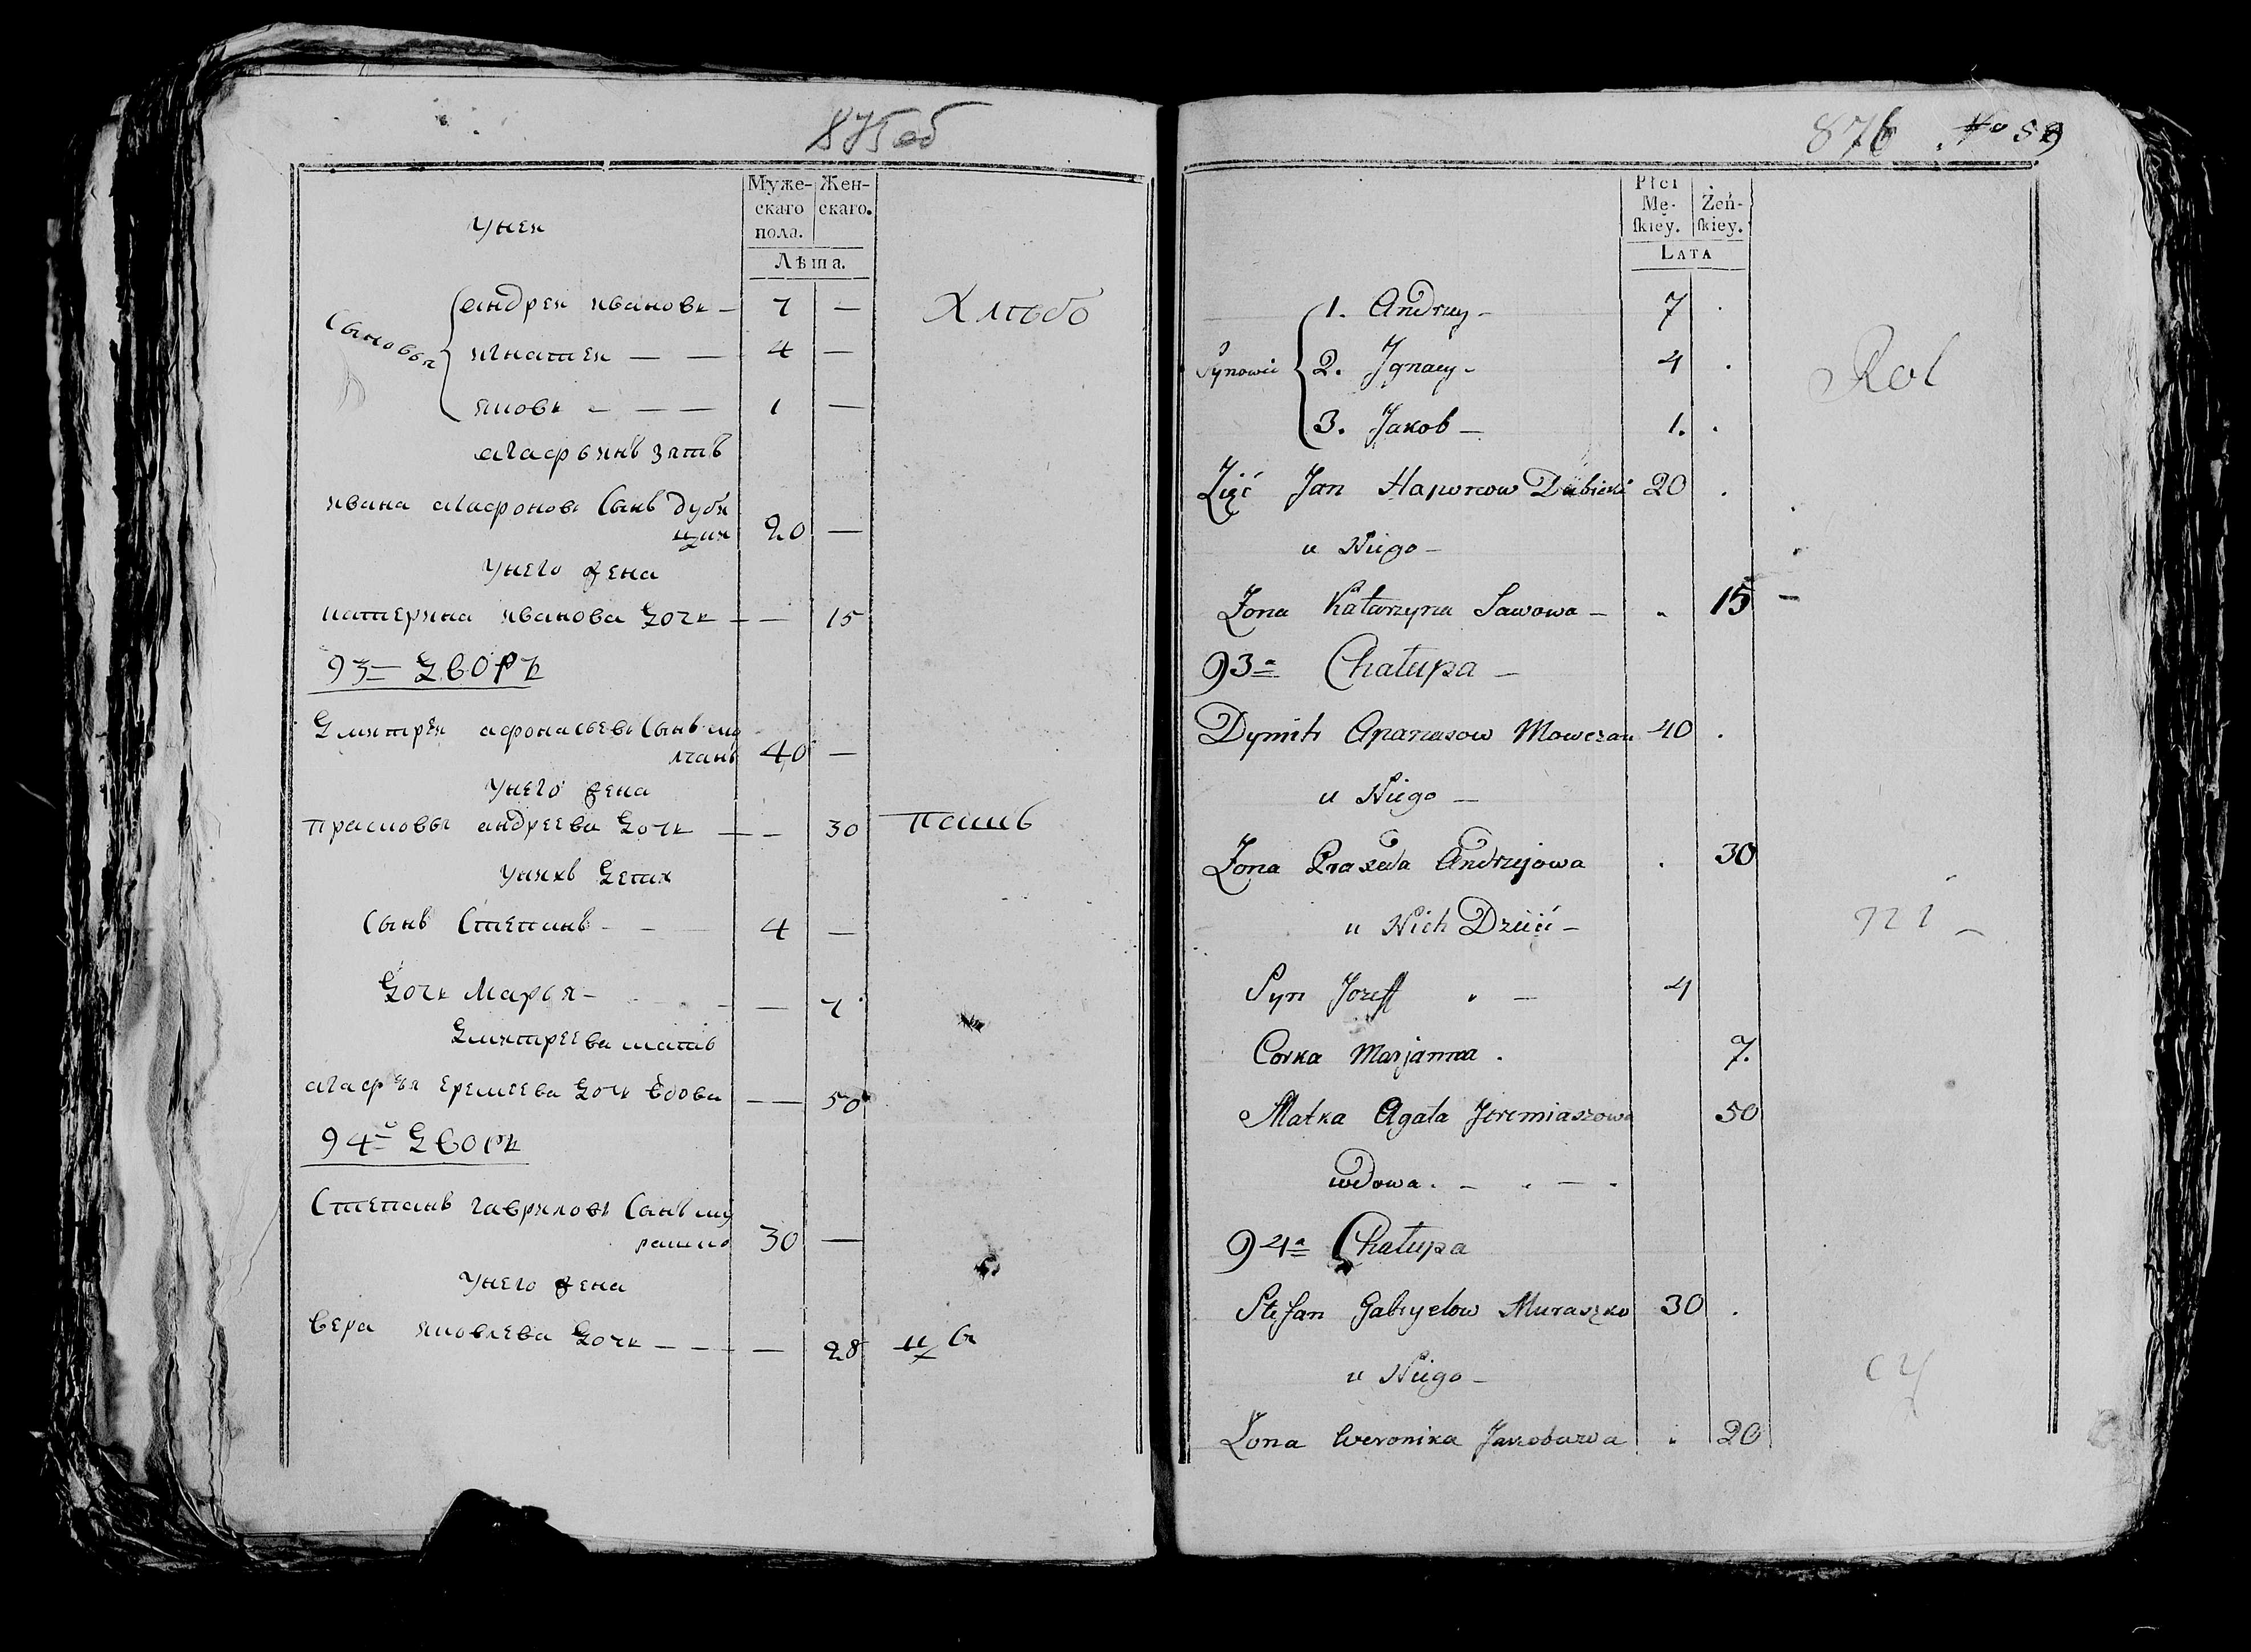 875об
Муже-
скаго
пола.
Жен-
скаго.
Лѣта.
Унея
Сыновья
андрей ивановъ — 7 —
игнатей — — 4 —
яковъ — — — 1 —
Хлѣбо
агафьинъ зять
ивана агафоновъ Сынъ дуби
цки 20 —
Унего жена
катерина иванова дочь — — 15
93 — дворъ
дмитрей афонасьевъ Сынъ мо
лчанъ 40 —
Унего жена
прасковья андреева дочь — — 30
пашъ
Унихъ дети
Сынъ Степанъ — — 4 —
дочь Марья — — 7
дмитреева мать
агафья еремеева дочь вдова — — 50
94 — дворъ
Степанъ гавриловъ Сынъ му
рашко 30 —
Унего жена
вера яковлева дочь — — — — 28
876 No 59
Płci
Mę-
skiey.
Żeń-
skiey.
LATA
Synowie
1. Andrzey — 7 .
2. Jgnacy — 4 .
3. Jakob — 1. .
Rol
Zięć Jan Haponow Dubicki 20 .
u Niego —
Żona Katarzyna Sawowa — 15 —
93a Chałupa —
Dymitr Apanasow Mowczan 40 .
u Niego —
Żona Praxeda Andrzejowa . 30
u Nich Dzieci —
ni —
Syn Jozeff — 4
Corka Marjanna . 7.
Matka Agata Jeremiaszowa 50
wdowa . — . — .
94a Chałupa
Stefan Gabryelow Muraszko 30 .
u Niego —
cy
Żona Weronika Jakobowa . 20